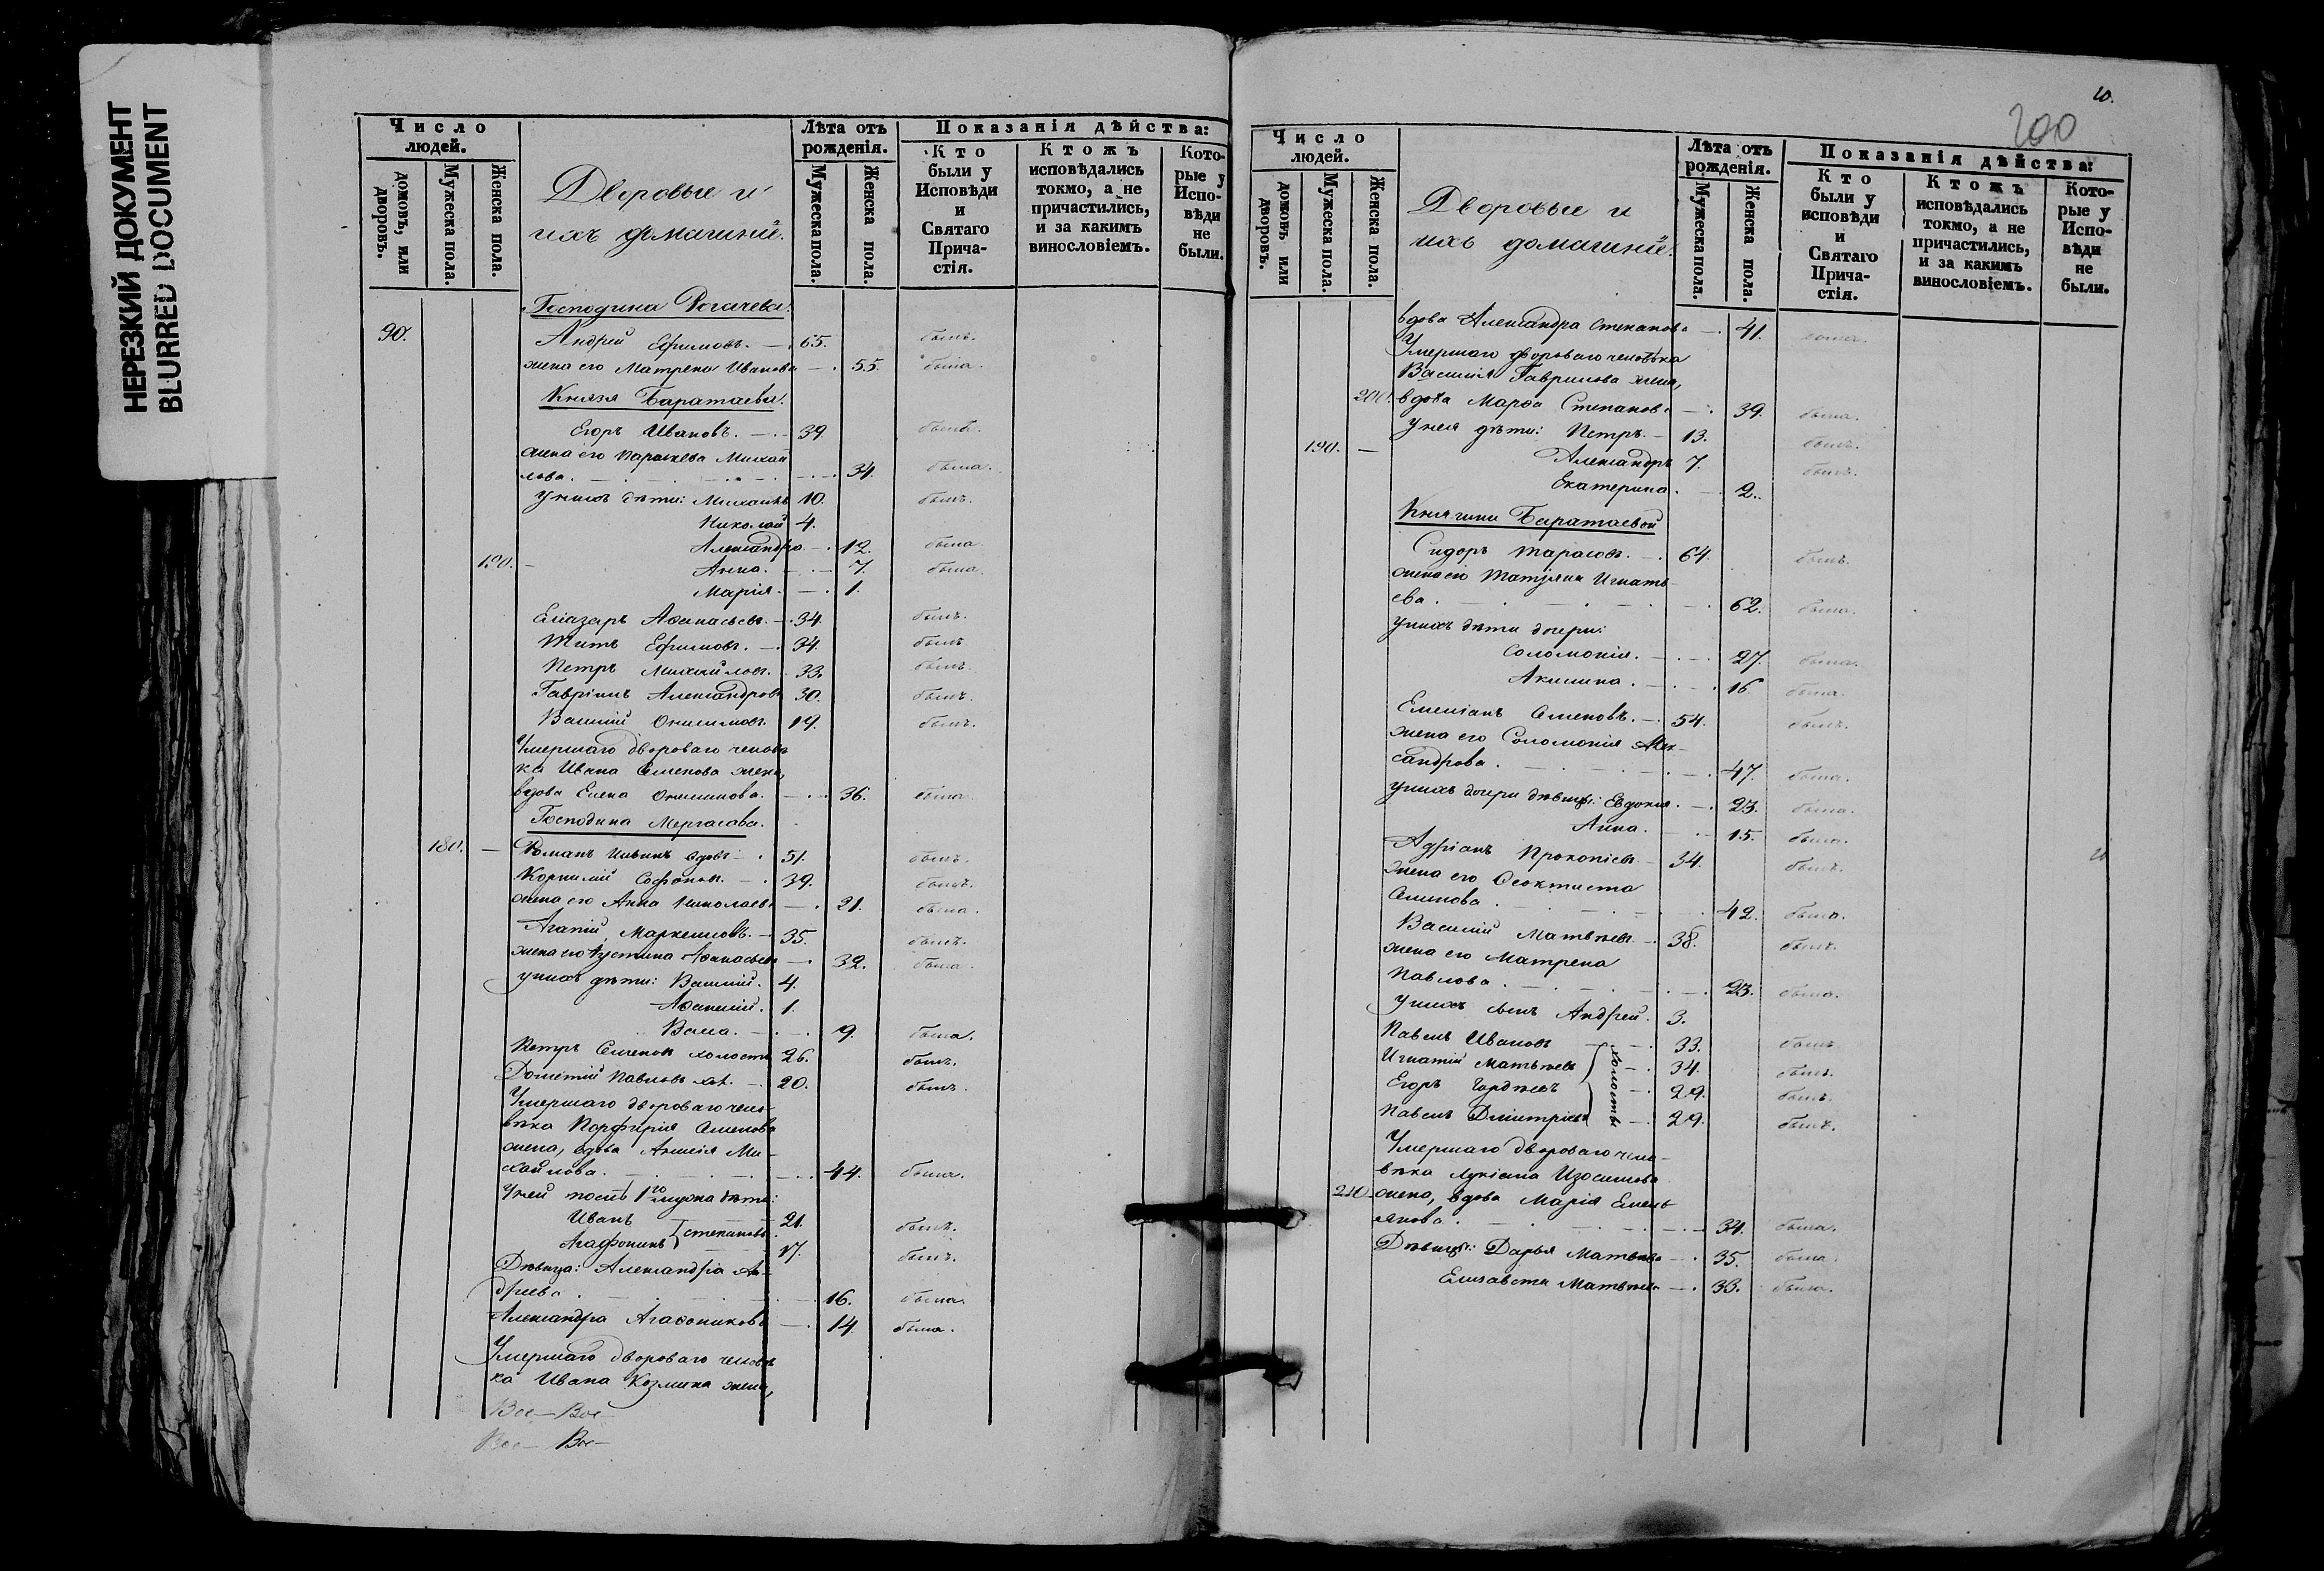 НЕРЕЗКИЙ ДОКУМЕНТ
BLURRED DOCUMENT
Число людей.
домовъ, или дворовъ.
Мужеска пола.
Женска пола.
Дворовые и
ихъ домашніи.
Лѣта отъ рожденія.
Мужеска пола.
Женска пола.
Показанія дѣйства:
Кто были у Исповѣди и Святаго Прича-стія.
Ктожъ исповѣдались токмо, а не причастились, и за какимъ винословіемъ.
Кото-рые у Испо-вѣди не были.
Господина Рогачева.
90. Андрей Ефимовъ. — 65. былъ.
жена его Матрена Иванова — 55. была.
Князя Баратаева.
Егоръ Ивановъ. — 39. былъ.
жена его Параскева Михай
лова. — 34. была.
у нихъ дѣти: Михаилъ 10. былъ.
Николай 4.
Александра — 12. была.
190. — Анна. — 7. была.
Марія. — 1.
Еліазаръ Аѳанасьевъ. — 34. былъ.
Титъ Ефимовъ. — 34. былъ.
Петръ Михайловъ. 33. былъ.
Гавріилъ Александровъ 30. былъ.
Василій Онисимовъ. 19. былъ.
Умершаго двороваго человѣ
ка Ивана Семенова жена,
вдова Елена Онисимова. — 36. была.
Господина Мергасова.
180. — Романъ Ильинъ вдовъ — 51. былъ.
Корнилій Софоновъ. — 39. былъ.
жена его Анна Николаева — 21. была.
Агапій Маркелловъ. — 35. былъ.
жена его Устина Аѳанасьева — 32. была.
у нихъ дѣти: Василій. 4.
Аѳанасій. 1.
Васса. — 9. была.
Петръ Семеновъ холостъ 26. былъ.
Дометій Павловъ хол. — 20. былъ.
Умершаго двороваго чело-
вѣка Порфирія Семенова
жена, вдова Анисія Ми-
хайлова. — 44. была.
У ней послѣ 1го мужа дѣти:
Иванъ 21. былъ.
Степановы.
Агафоникъ 17. былъ.
Дѣвица: Александра Ан-
дреева. — 16. была.
Александра Агаѳоникова — 14. была.
Умершаго двороваго человѣ
ка Ивана Козмина жена,
Вос— Вос—
Вос— Вос—
10.
200
Число людей.
домовъ или дворовъ.
Мужеска пола.
Женска пола.
Дворовые и
ихъ домашніи.
Лѣта отъ рожденія.
Мужеска пола.
Женска пола.
Показанія дѣйства:
Кто были у исповѣди и Святаго Прича-стія.
Ктожъ исповѣдались токмо, а не причастились, и за какимъ винословіемъ.
Кото-рые у Испо-вѣди не были.
вдова Александра Степанова — 41. была.
Умершаго двороваго человѣка
Василія Гаврилова жена,
200. вдова Марѳа Степанова — 39. была.
у нея дѣти: Петръ. — 13. былъ.
190. — Александръ 7. былъ.
Екатерина. — 2.
Княгини Баратаевой
Сидоръ Тарасовъ. — 64. былъ.
жена его Татіяна Игнать
ева. — 62. была.
у нихъ дѣти дочери:
Соломонія. — 27. была.
Акилина. — 16. была.
Емеліанъ Семеновъ. — 54. былъ.
жена его Соломонія Алек-
сандрова. — 47. была.
у нихъ дочери дѣвицы: Евдокія. — 23. была.
Анна. — 15. была.
Адріанъ Прокопіевъ — 34. былъ.
жена его Ѳеоктиста
Семенова. — 42. была.
Василій Матвѣевъ — 38. былъ.
жена его Матрена
Павлова. — 23. была.
у нихъ сынъ Андрей. 3.
Павелъ Ивановъ — 33. былъ.
Игнатій Матвѣевъ — 34. былъ.
Егоръ Гордѣевъ — 29. былъ.
Павелъ Дмитріевъ — 29. былъ.
холосты
Умершаго двороваго чело-
вѣка Лукіана Изосимова
210. жена, вдова Марія Емель
янова. — 34. была.
Дѣвицы: Дарья Матвѣева — 35. была.
Елизавета Матвѣева — 33. была.